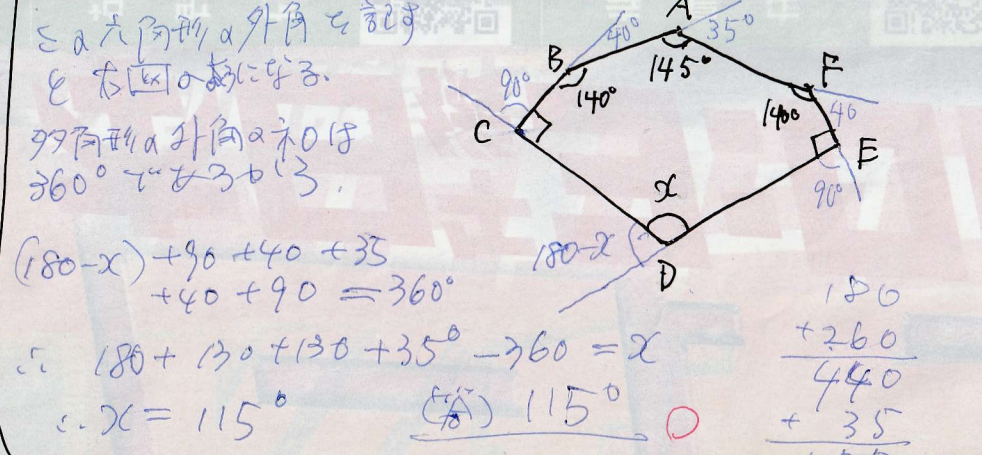 この六角形の外角を記す
と右図の様になる.
多角形の外角の和は
360°であるから.
(180-x)+90+40+35
+40+90=360°
∴ 180+130+130+35°-360=x
∴ x=115°
(答) 115°
A
35°
40°
145°
B
140°
90°
C
F
140°
40
E
90°
x
180-x
D
180
+260
440
+ 35